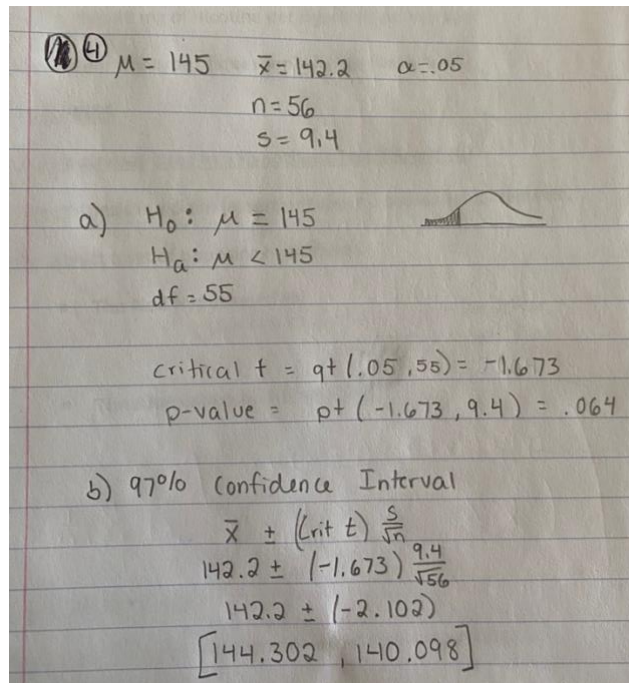 ④ μ = 145 x̄ = 142.2 α = .05
n = 56
s = 9.4
a) H₀: μ = 145
Hₐ: μ < 145
df = 55
critical t = qt (.05, 55) = -1.673
p-value = pt (-1.673, 9.4) = .064
b) 97% Confidence Interval
x̄ ± (Crit t) s/√n
142.2 ± (-1.673) 9.4/√56
142.2 ± (-2.102)
[144.302, 140.098]